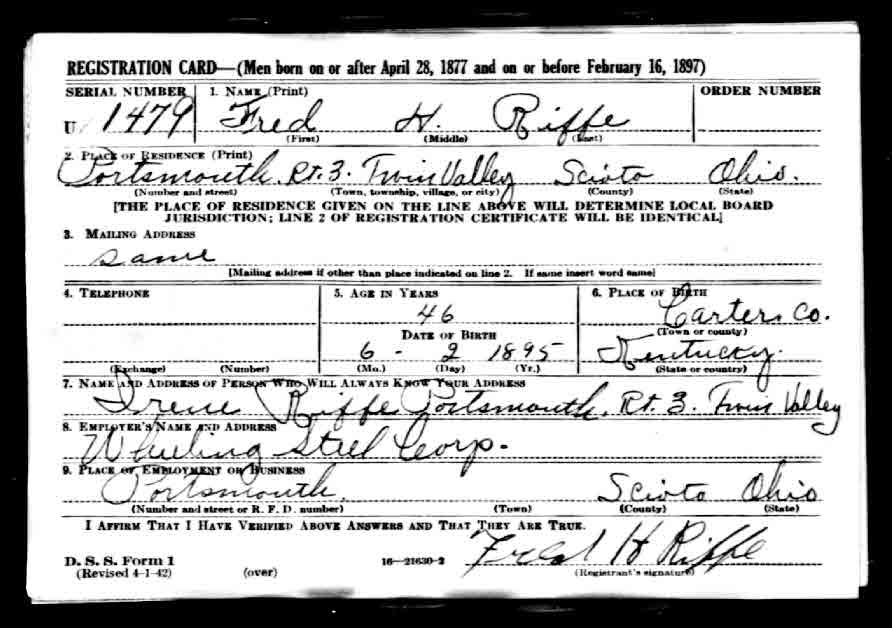 REGISTRATION CARD—(Men born on or after April 28, 1877 and on or before February 16, 1897)
SERIAL NUMBER 1. NAME (Print) ORDER NUMBER
U 1479 Fred H. Riffe
(First) (Middle) (Last)
2. PLACE OF RESIDENCE (Print)
Portsmouth. Rt. 3. Twin Valley Scioto Ohio.
(Number and street) (Town, township, village, or city) (County) (State)
[THE PLACE OF RESIDENCE GIVEN ON THE LINE ABOVE WILL DETERMINE LOCAL BOARD
JURISDICTION; LINE 2 OF REGISTRATION CERTIFICATE WILL BE IDENTICAL]
3. MAILING ADDRESS
Same
[Mailing address if other than place indicated on line 2. If same insert word same]
4. TELEPHONE 5. AGE IN YEARS 6. PLACE OF BIRTH
46 Carter Co.
DATE OF BIRTH (Town or county)
6 - 2 1895 Kentucky.
(Exchange) (Number) (Mo.) (Day) (Yr.) (State or country)
7. NAME AND ADDRESS OF PERSON WHO WILL ALWAYS KNOW YOUR ADDRESS
Irene Riffe Portsmouth. Rt. 3. Twin Valley
8. EMPLOYER'S NAME AND ADDRESS
Wheeling Steel Corp.
9. PLACE OF EMPLOYMENT OR BUSINESS
Portsmouth. Scioto Ohio
(Number and street or R. F. D. number) (Town) (County) (State)
I AFFIRM THAT I HAVE VERIFIED ABOVE ANSWERS AND THAT THEY ARE TRUE.
Fred H Riffe
D. S. S. Form 1 16—21630-2
(Revised 4-1-42) (over) (Registrant's signature)